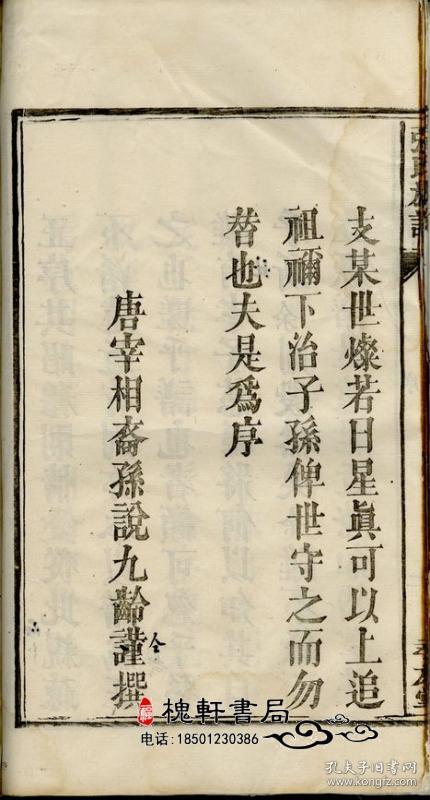 支某世燦若日星眞可以上追
祖禰下治子孫俾世守之而勿
替也夫是爲序
唐宰相裔孫說九齡謹撰
仝
槐軒書局
电话:18501230386
孔夫子旧书网